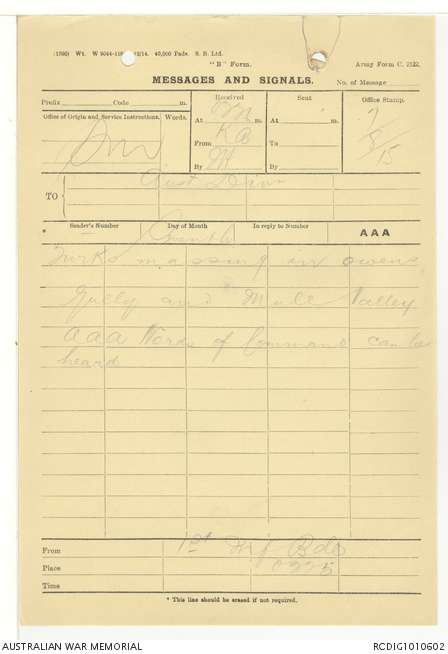 "B" Form.
Army Form C. 2122.
MESSAGES AND SIGNALS.
No. of Message
Prefix Code m.
Office of Origin and Service Instructions.
Words.
Received
At m.
From
By
Sent
At m.
To
By
Office Stamp.
7
8
15
TO
Aust Divn
Sender's Number
Day of Month
In reply to Number
AAA
Turks massing in owens
Gully and Mule Valley
aaa Words of Command can be
heard
From
1st Inf Bde
Place
0325
Time
* This line should be erased if not required.
AUSTRALIAN WAR MEMORIAL
RCDIG1010602